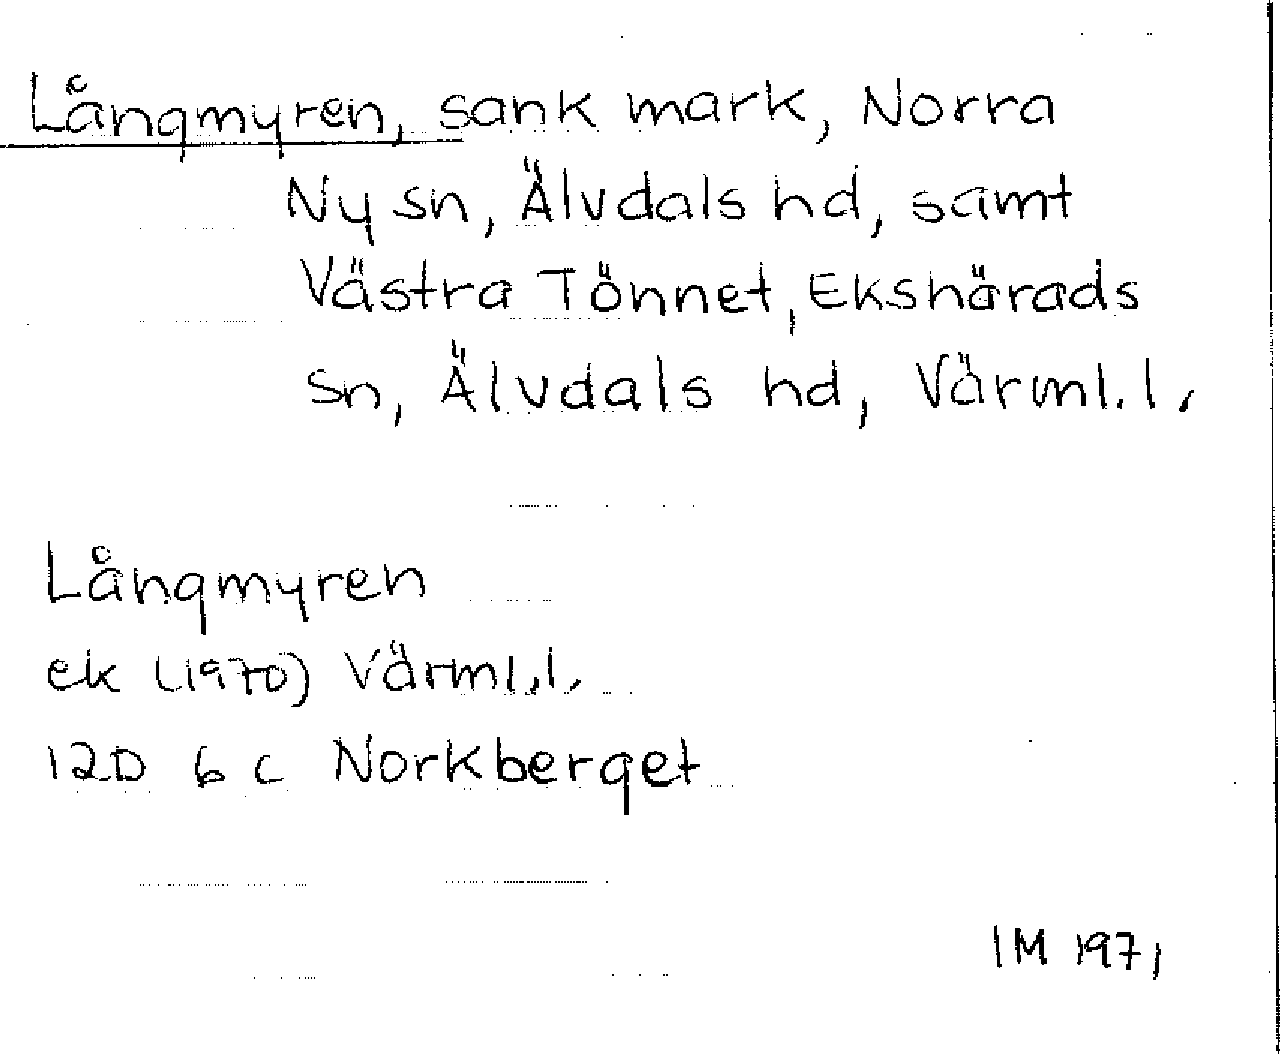 Långmyren, sank mark, Norra
Ny sn, Älvdals hd, samt
Västra Tönnet, Ekshärads
sn, Älvdals hd, Värml. l.
Långmyren
ek (1970) Värml. l.
12D 6 c Norkberget
IM 1971